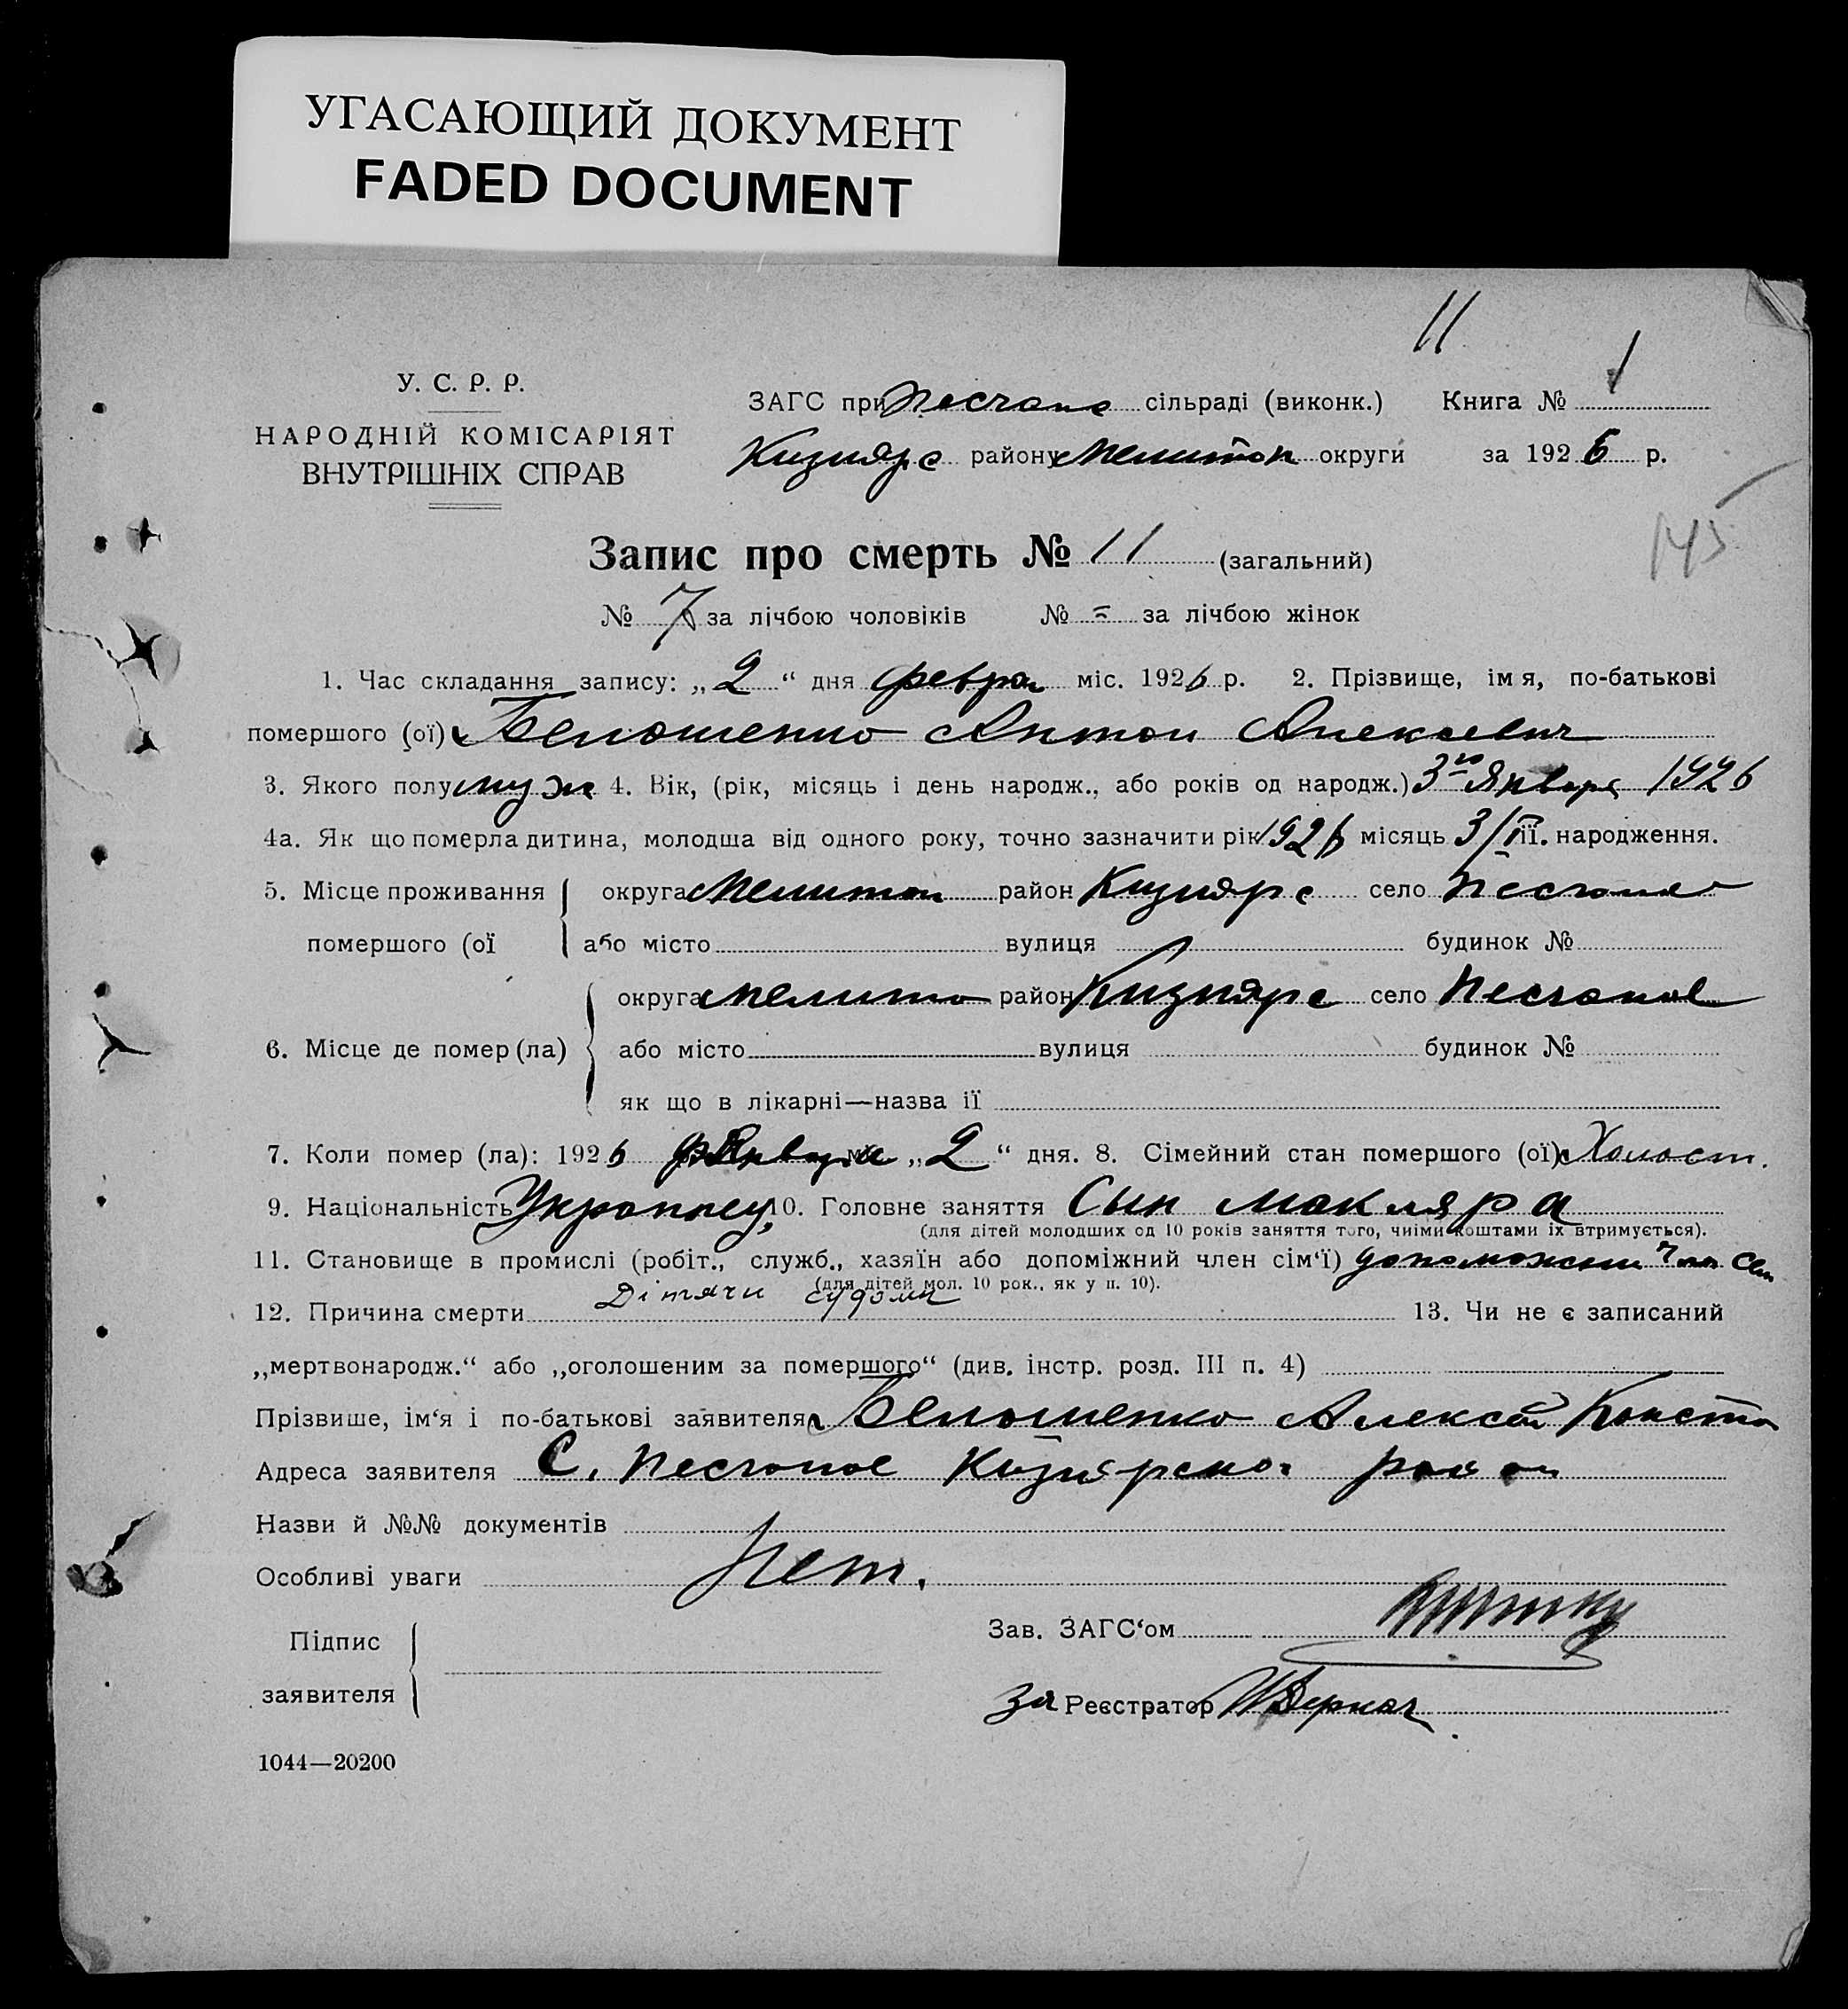 УГАСАЮЩИЙ ДОКУМЕНТ
FADED DOCUMENT
11
У. С. Р. Р.
НАРОДНІЙ КОМІСАРІЯТ
ВНУТРІШНІХ СПРАВ
ЗАГС при Песчанс сільраді (виконк.) Книга № 1
Кизиярс району Мелитоп округи за 1926 р.
145
Запис про смерть № 11 (загальний)
№ 7 за лічбою чоловіків № = за лічбою жінок
1. Час складання запису: „2“ дня февра міс. 1926 р. 2. Прізвище, імя, по-батькові
помершого (ої) Белошенко Антон Алексеевич
3. Якого полу муж 4. Вік, (рік, місяць і день народж., або років од народж.) 3го Января 1926
4а. Як що померла дитина, молодша від одного року, точно зазначити рік 1926 місяць 3/I її. народження.
5. Місце проживання округа Мелитоп район Кизиярс село Песчаное
помершого (ої або місто вулиця будинок №
округа Мелито район Кизиярс село Песчаное
6. Місце де помер (ла) або місто вулиця будинок №
як що в лікарні—назва її
7. Коли помер (ла): 1926 Января „2“ дня. 8. Сімейний стан помершого (ої) Холост.
9. Національність 10. Головне заняття Сын макляра
(для дітей молодших од 10 років заняття того, чиіми коштами їх втримується).
11. Становище в промислі (робіт., служб., хазяїн або допоміжний член сім‘ї) допоможни член сем
(для дітей мол. 10 рок., як у п. 10).
12. Причина смерти Дітячи судоми 13. Чи не є записаний
„мертвонародж.“ або „оголошеним за помершого“ (див. інстр. розд. III п. 4)
Прізвише, ім‘я і по-батькові заявителя Белошенко Алексей Конста
Адреса заявителя С. Песчаное Кизиярско району
Назви й №№ документів
Особливі уваги Нет.
Підпис
заявителя
Зав. ЗАГС‘ом
за Реєстратор Деркач
1044—20200